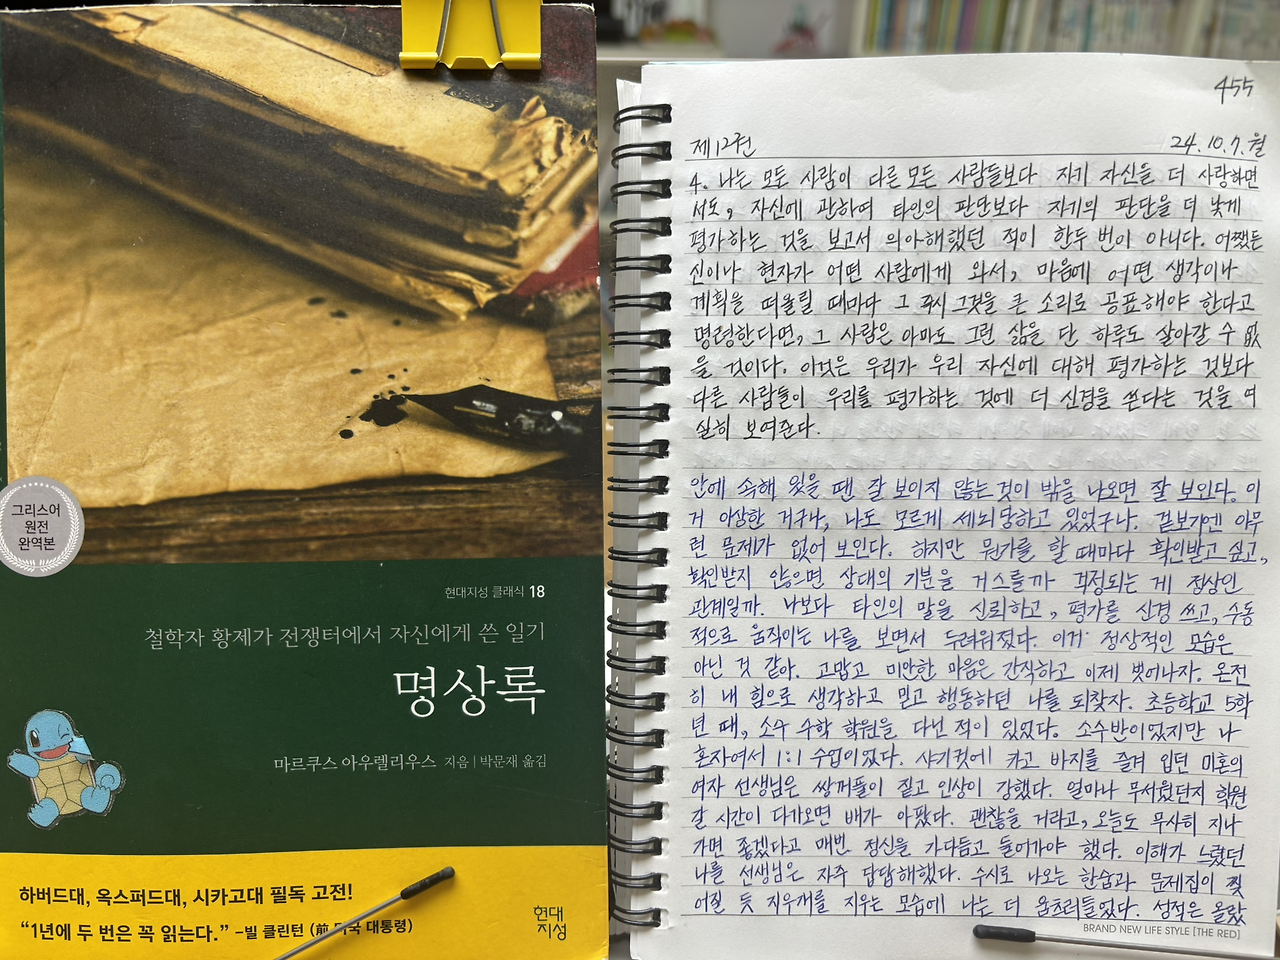 그리스어
원전
완역본
현대지성 클래식 18
철학자 황제가 전쟁터에서 자신에게 쓴 일기
명상록
마르쿠스 아우렐리우스 지음 | 박문재 옮김
하버드대, 옥스퍼드대, 시카고대 필독 고전!
“1년에 두 번은 꼭 읽는다.” –빌 클린턴 (前 미국 대통령)
현대
지성
455
제12권 24.10.7.월
4. 나는 모든 사람이 다른 모든 사람들보다 자기 자신을 더 사랑하면
서도, 자신에 관하여 타인의 판단보다 자기의 판단을 더 낮게
평가하는 것을 보고서 의아해했던 적이 한두 번이 아니다. 어쨌든
신이나 현자가 어떤 사람에게 와서, 마음에 어떤 생각이나
계획을 떠올릴 때마다 그 즉시 그것을 큰 소리로 공표해야 한다고
명령한다면, 그 사람은 아마도 그런 삶을 단 하루도 살아갈 수 없
을 것이다. 이것은 우리가 우리 자신에 대해 평가하는 것보다
다른 사람들이 우리를 평가하는 것에 더 신경을 쓴다는 것을 여
실히 보여준다.
안에 속해 있을 땐 잘 보이지 않는 것이 밖을 나오면 잘 보인다. 이
거 이상한 거구나, 나도 모르게 세뇌당하고 있었구나. 겉보기엔 아무
런 문제가 없어 보인다. 하지만 뭔가를 할 때마다 확인받고 싶고,
확인받지 않으면 상대의 기분을 거스를까 걱정되는 게 정상인
관계일까. 나보다 타인의 말을 신뢰하고, 평가를 신경 쓰고, 수동
적으로 움직이는 나를 보면서 두려워졌다. 이거 정상적인 모습은
아닌 것 같아. 고맙고 미안한 마음은 간직하고 이제 벗어나자. 온전
히 내 힘으로 생각하고 믿고 행동하던 나를 되찾자. 초등학교 5학
년 때, 소수 수학 학원을 다닌 적이 있었다. 소수반이었지만 나
혼자여서 1:1 수업이었다. 샤기컷에 카고 바지를 즐겨 입던 미혼의
여자 선생님은 쌍꺼풀이 짙고 인상이 강했다. 얼마나 무서웠던지 학원
갈 시간이 다가오면 배가 아팠다. 괜찮을 거라고, 오늘도 무사히 지나
가면 좋겠다고 매번 정신을 가다듬고 들어가야 했다. 이해가 느렸던
나를 선생님은 자주 답답해했다. 수시로 나오는 한숨과 문제집이 찢
어질 듯 지우개를 지우는 모습에 나는 더 움츠러들었다. 성적은 올랐
BRAND NEW LIFE STYLE [THE RED]